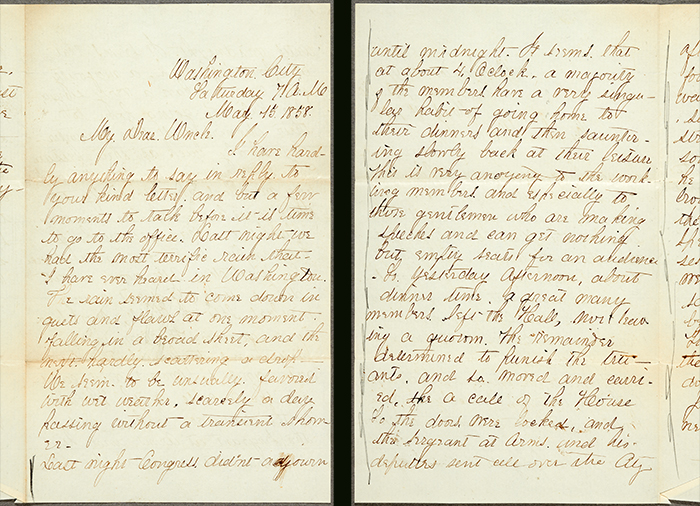 Washington City
Saturday 7 A. Mo
May 15. 1858.
My Dear Uncle.
I have hard-
ly anything to say in reply to
your kind letter, and but a few
moments to talk before it is time
to go to the office. Last night we
had the most terrific rain that
I have ever heard in Washington.
The rain seemed to come down in
guts and flaws at one moment
falling in a broad sheet, and the
next hardly scattering a drop.
We seem to be unsually favored
with wet weather, scarsely a day
passing without a transient show-
er-
Last night Congress did'nt adjourn
until midnight. It seems that
at about 4 Oclock. a majority
of the members have a very singu-
lar habit of going home to
their dinners and then saunter-
ing slowly back at their leisure
This is very anoying to the work-
ing members and especially to
those gentlemen who are making
speeches and can get nothing
but empty seats for an audience
So yesterday afternoon, about
dinner time, a great many
members left the Hall, not leav
ing a quorum. The remainder
determined to punish the tru-
ants, and so moved and carri-
ed, the a call of the House
So the doors were locked, and
the sergeant at Arms, and his
deputies sent all over the City